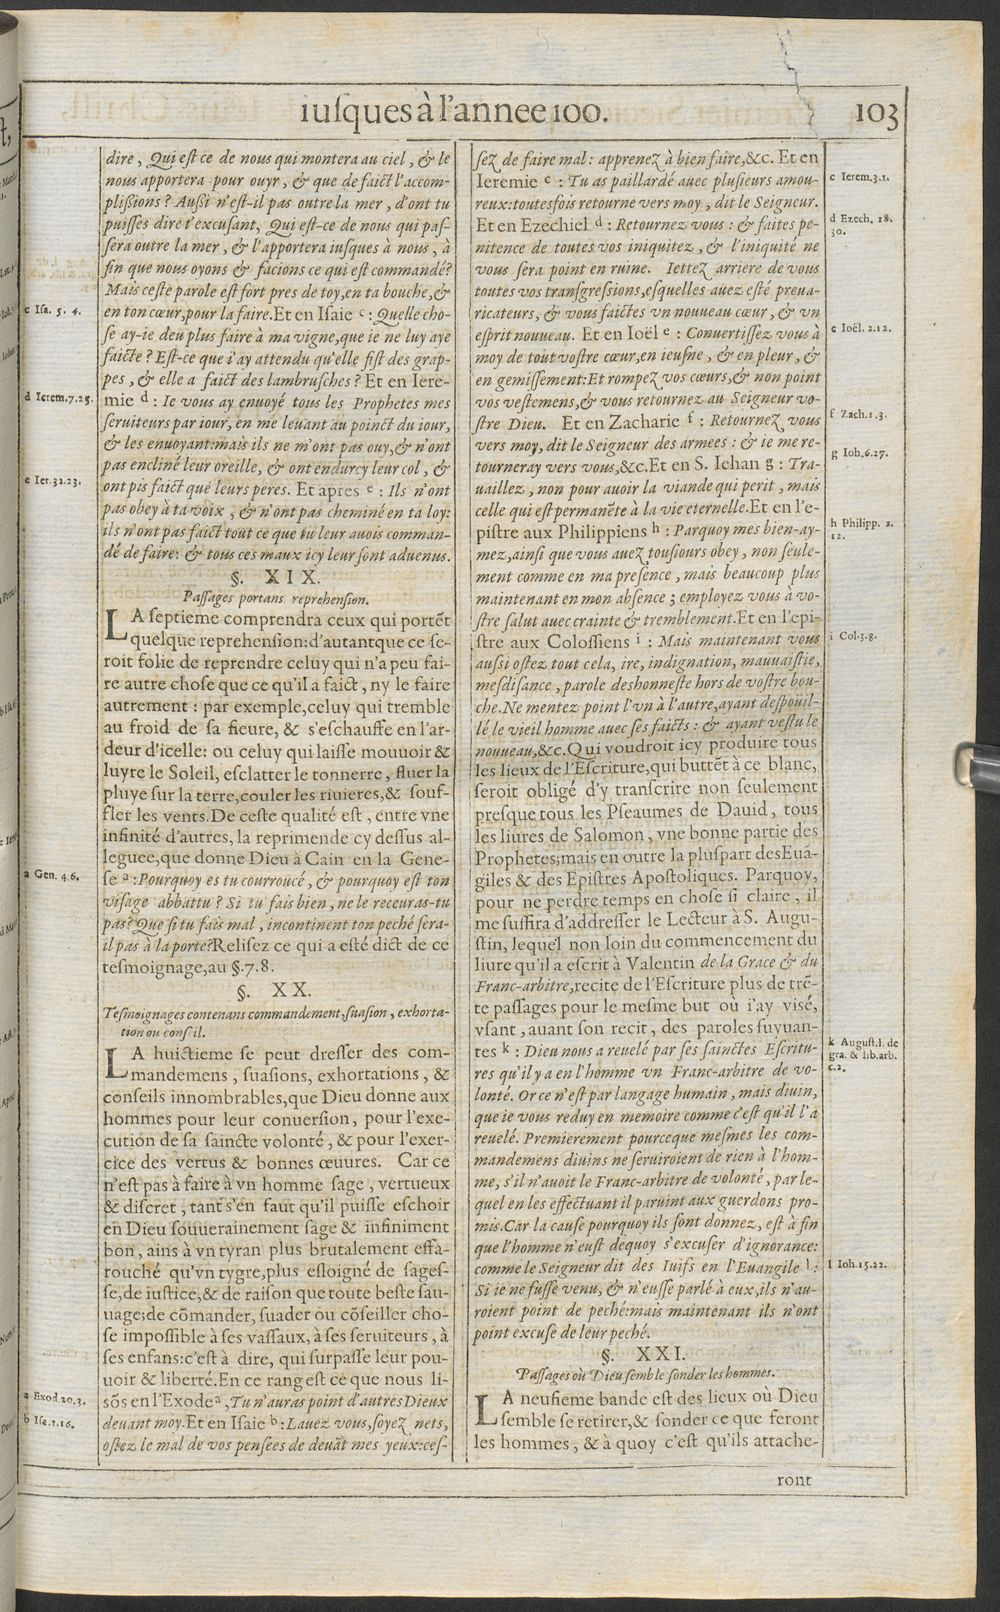 iusques à l'annee 100.
103
dire, Qui est ce de nous qui montera au ciel, & le
nous apportera pour ouyr, & que de faict l'accom-
plißions? Außi n'est-il pas outre la mer, d'ont tu
puisses dire t'excusant, Qui est-ce de nous qui pas-
sera outre la mer, & l'apportera iusques à nous, à
fin que nous oyons & facions ce qui est commandé?
Mais ceste parole est fort pres de toy, en ta bouche, &
en ton cœur, pour la faire. Et en Isaie c : Quelle cho-
se ay-ie deu plus faire à ma vigne, que ie ne luy aye
faicte? Est-ce que i'ay attendu qu'elle fist des grap-
pes, & elle a faict des lambrusches? Et en Iere-
mie d : Ie vous ay enuoyé tous les Prophetes mes
seruiteurs par iour, en me leuant au poinct du iour,
& les enuoyant: mais ils ne m'ont pas ouy, & n'ont
pas encliné leur oreille, & ont endurcy leur col, &
ont pis faict que leurs peres. Et apres e : Ils n'ont
pas obey à ta voix, & n'ont pas cheminé en ta loy:
ils n'ont pas faict tout ce que tu leur auois comman-
dé de faire: & tous ces maux icy leur sont aduenus.
§. XIX.
Passages portans reprehension.
LA septieme comprendra ceux qui portẽt
quelque reprehension: d'autant que ce se-
roit folie de reprendre celuy qui n'a peu fai-
re autre chose que ce qu'il a faict, ny le faire
autrement : par exemple, celuy qui tremble
au froid de sa fieure, & s'eschauffe en l'ar-
deur d'icelle: ou celuy qui laisse mouuoir &
luyre le Soleil, esclatter le tonnerre, fluer la
pluye sur la terre, couler les riuieres, & souf-
fler les vents. De ceste qualité est, entre vne
infinité d'autres, la reprimende cy dessus al-
leguee, que donne Dieu à Cain en la Gene-
se a : Pourquoy es tu courroucé, & pourquoy est ton
visage abbattu? Si tu fais bien, ne le receuras-tu
pas? Que si tu fais mal, incontinent ton peché sera-
il pas à la porte? Relisez ce qui a esté dict de ce
tesmoignage, au §. 7. 8.
§. XX.
Tesmoignages contenans commandement, suasion, exhorta-
tion ou conseil.
LA huictieme se peut dresser des com-
mandemens, suasions, exhortations, &
conseils innombrables, que Dieu donne aux
hommes pour leur conuersion, pour l'exe-
cution de sa saincte volonté, & pour l'exer-
cice des vertus & bonnes œuures. Car ce
n'est pas à faire à vn homme sage, vertueux
& discret, tant s'en faut qu'il puisse eschoir
en Dieu souuerainement sage & infiniment
bon, ains à vn tyran plus brutalement effa-
rouché qu'vn tygre, plus esloigné de sages-
se, de iustice, & de raison que toute beste sau-
uage; de cõmander, suader ou cõseiller cho-
se impossible à ses vassaux, à ses seruiteurs, à
ses enfans: c'est à dire, qui surpasse leur pou-
uoir & liberté. En ce rang est ce que nous li-
sõs en l'Exode a, Tu n'auras point d'autres Dieux
deuant moy. Et en Isaie b : Lauez vous, soyez nets,
ostez le mal de vos pensees de deuãt mes yeux: ces-
c Isa. 5. 4.
d Ierem. 7. 25.
e Ier. 32. 23.
a Gen. 4. 6.
a Exod. 20. 3.
b Isa. 1. 16.
sez de faire mal: apprenez à bien faire, &c. Et en
Ieremie c : Tu as paillardé auec plusieurs amou-
reux: toutesfois retourne vers moy, dit le Seigneur.
Et en Ezechiel d : Retournez vous: & faites pe-
nitence de toutes vos iniquitez, & l'iniquité ne
vous sera point en ruine. Iettez arriere de vous
toutes vos transgressions, esquelles auez esté preua-
ricateurs, & vous faictes vn nouueau cœur, & vn
esprit nouueau. Et en Ioël e : Conuertissez vous à
moy de tout vostre cœur, en ieusne, & en pleur, &
en gemissement: Et rompez vos cœurs, & non point
vos vestemens, & vous retournez au Seigneur vo-
stre Dieu. Et en Zacharie f : Retournez vous
vers moy, dit le Seigneur des armees: & ie me re-
tourneray vers vous, &c. Et en S. Iehan g : Tra-
uaillez, non pour auoir la viande qui perit, mais
celle qui est permanẽte à la vie eternelle. Et en l'e-
pistre aux Philippiens h : Parquoy mes bien-ay-
mez, ainsi que vous auez tousiours obey, non seule-
ment comme en ma presence, mais beaucoup plus
maintenant en mon absence; employez vous à vo-
stre salut auec crainte & tremblement. Et en l'epi-
stre aux Colossiens i : Mais maintenant vous
aussi ostez tout cela, ire, indignation, mauuaistie,
mesdisance, parole deshonneste hors de vostre bou-
che. Ne mentez point l'vn à l'autre, ayant despoüil-
lé le vieil homme auec ses faicts: & ayant vestu le
nouueau, &c. Qui voudroit icy produire tous
les lieux de l'Escriture, qui buttẽt à ce blanc,
seroit obligé d'y transcrire non seulement
presque tous les Pseaumes de Dauid, tous
les liures de Salomon, vne bonne partie des
Prophetes; mais en outre la pluspart des Euã-
giles & des Epistres Apostoliques. Parquoy,
pour ne perdre temps en chose si claire, il
me suffira d'addresser le Lecteur à S. Augu-
stin, lequel non loin du commencement du
liure qu'il a escrit à Valentin de la Grace & du
Franc-arbitre, recite de l'Escriture plus de trẽ-
te passages pour le mesme but où i'ay visé,
vsant, auant son recit, des paroles suyuan-
tes k : Dieu nous a reuelé par ses sainctes Escritu-
res qu'il y a en l'homme vn Franc-arbitre de vo-
lonté. Or ce n'est par langage humain, mais diuin,
que ie vous reduy en memoire comme c'est qu'il l'a
reuelé. Premierement pource que mesmes les com-
mandemens diuins ne seruiroient de rien à l'hom-
me, s'il n'auoit le Franc-arbitre de volonté, par le-
quel en les effectuant il paruint aux guerdons pro-
mis. Car la cause pourquoy ils sont donnez, est à fin
que l'homme n'eust dequoy s'excuser d'ignorance:
comme le Seigneur dit des Iuifs en l'Euangile l :
Si ie ne fusse venu, & n'eusse parlé à eux, ils n'au-
roient point de peché: mais maintenant ils n'ont
point excuse de leur peché.
§. XXI.
Passages où Dieu semble sonder les hommes.
LA neufieme bande est des lieux où Dieu
semble se retirer, & sonder ce que feront
les hommes, & à quoy c'est qu'ils attache-
ront
c Ierem. 3. 1.
d Ezech. 18.
30.
e Ioël. 2. 12.
f Zach. 1. 3.
g Ioh. 6. 27.
h Philipp. 2.
12.
i Col. 3. 8.
k August. l. de
gra. & lib. arb.
c. 2.
l Ioh. 15. 22.